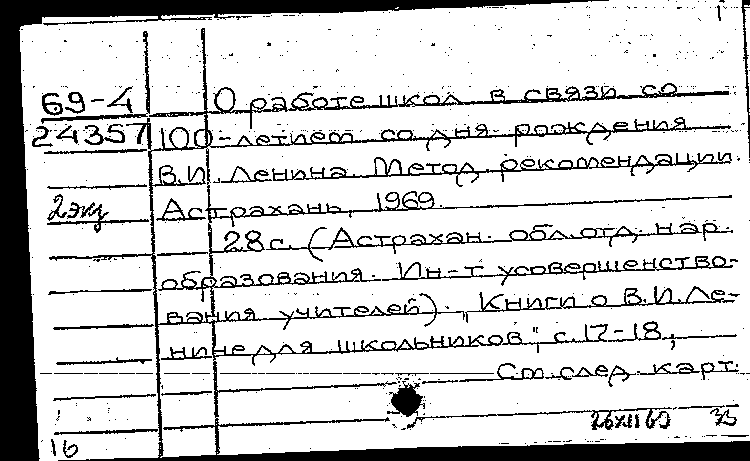 69-4 О работе школ в связи со
24357 100-летием со дня рождения
В.И. Ленина. Метод. рекомендации.
2 экз Астрахань, 1969.
28 с. (Астрахан. обл. отд. нар.
образования. Ин-т усовершенство-
вания учителей). "Книги о В.И. Ле-
нине для школьников", с. 17-18,
См. след. карт.
26 XII 69
16